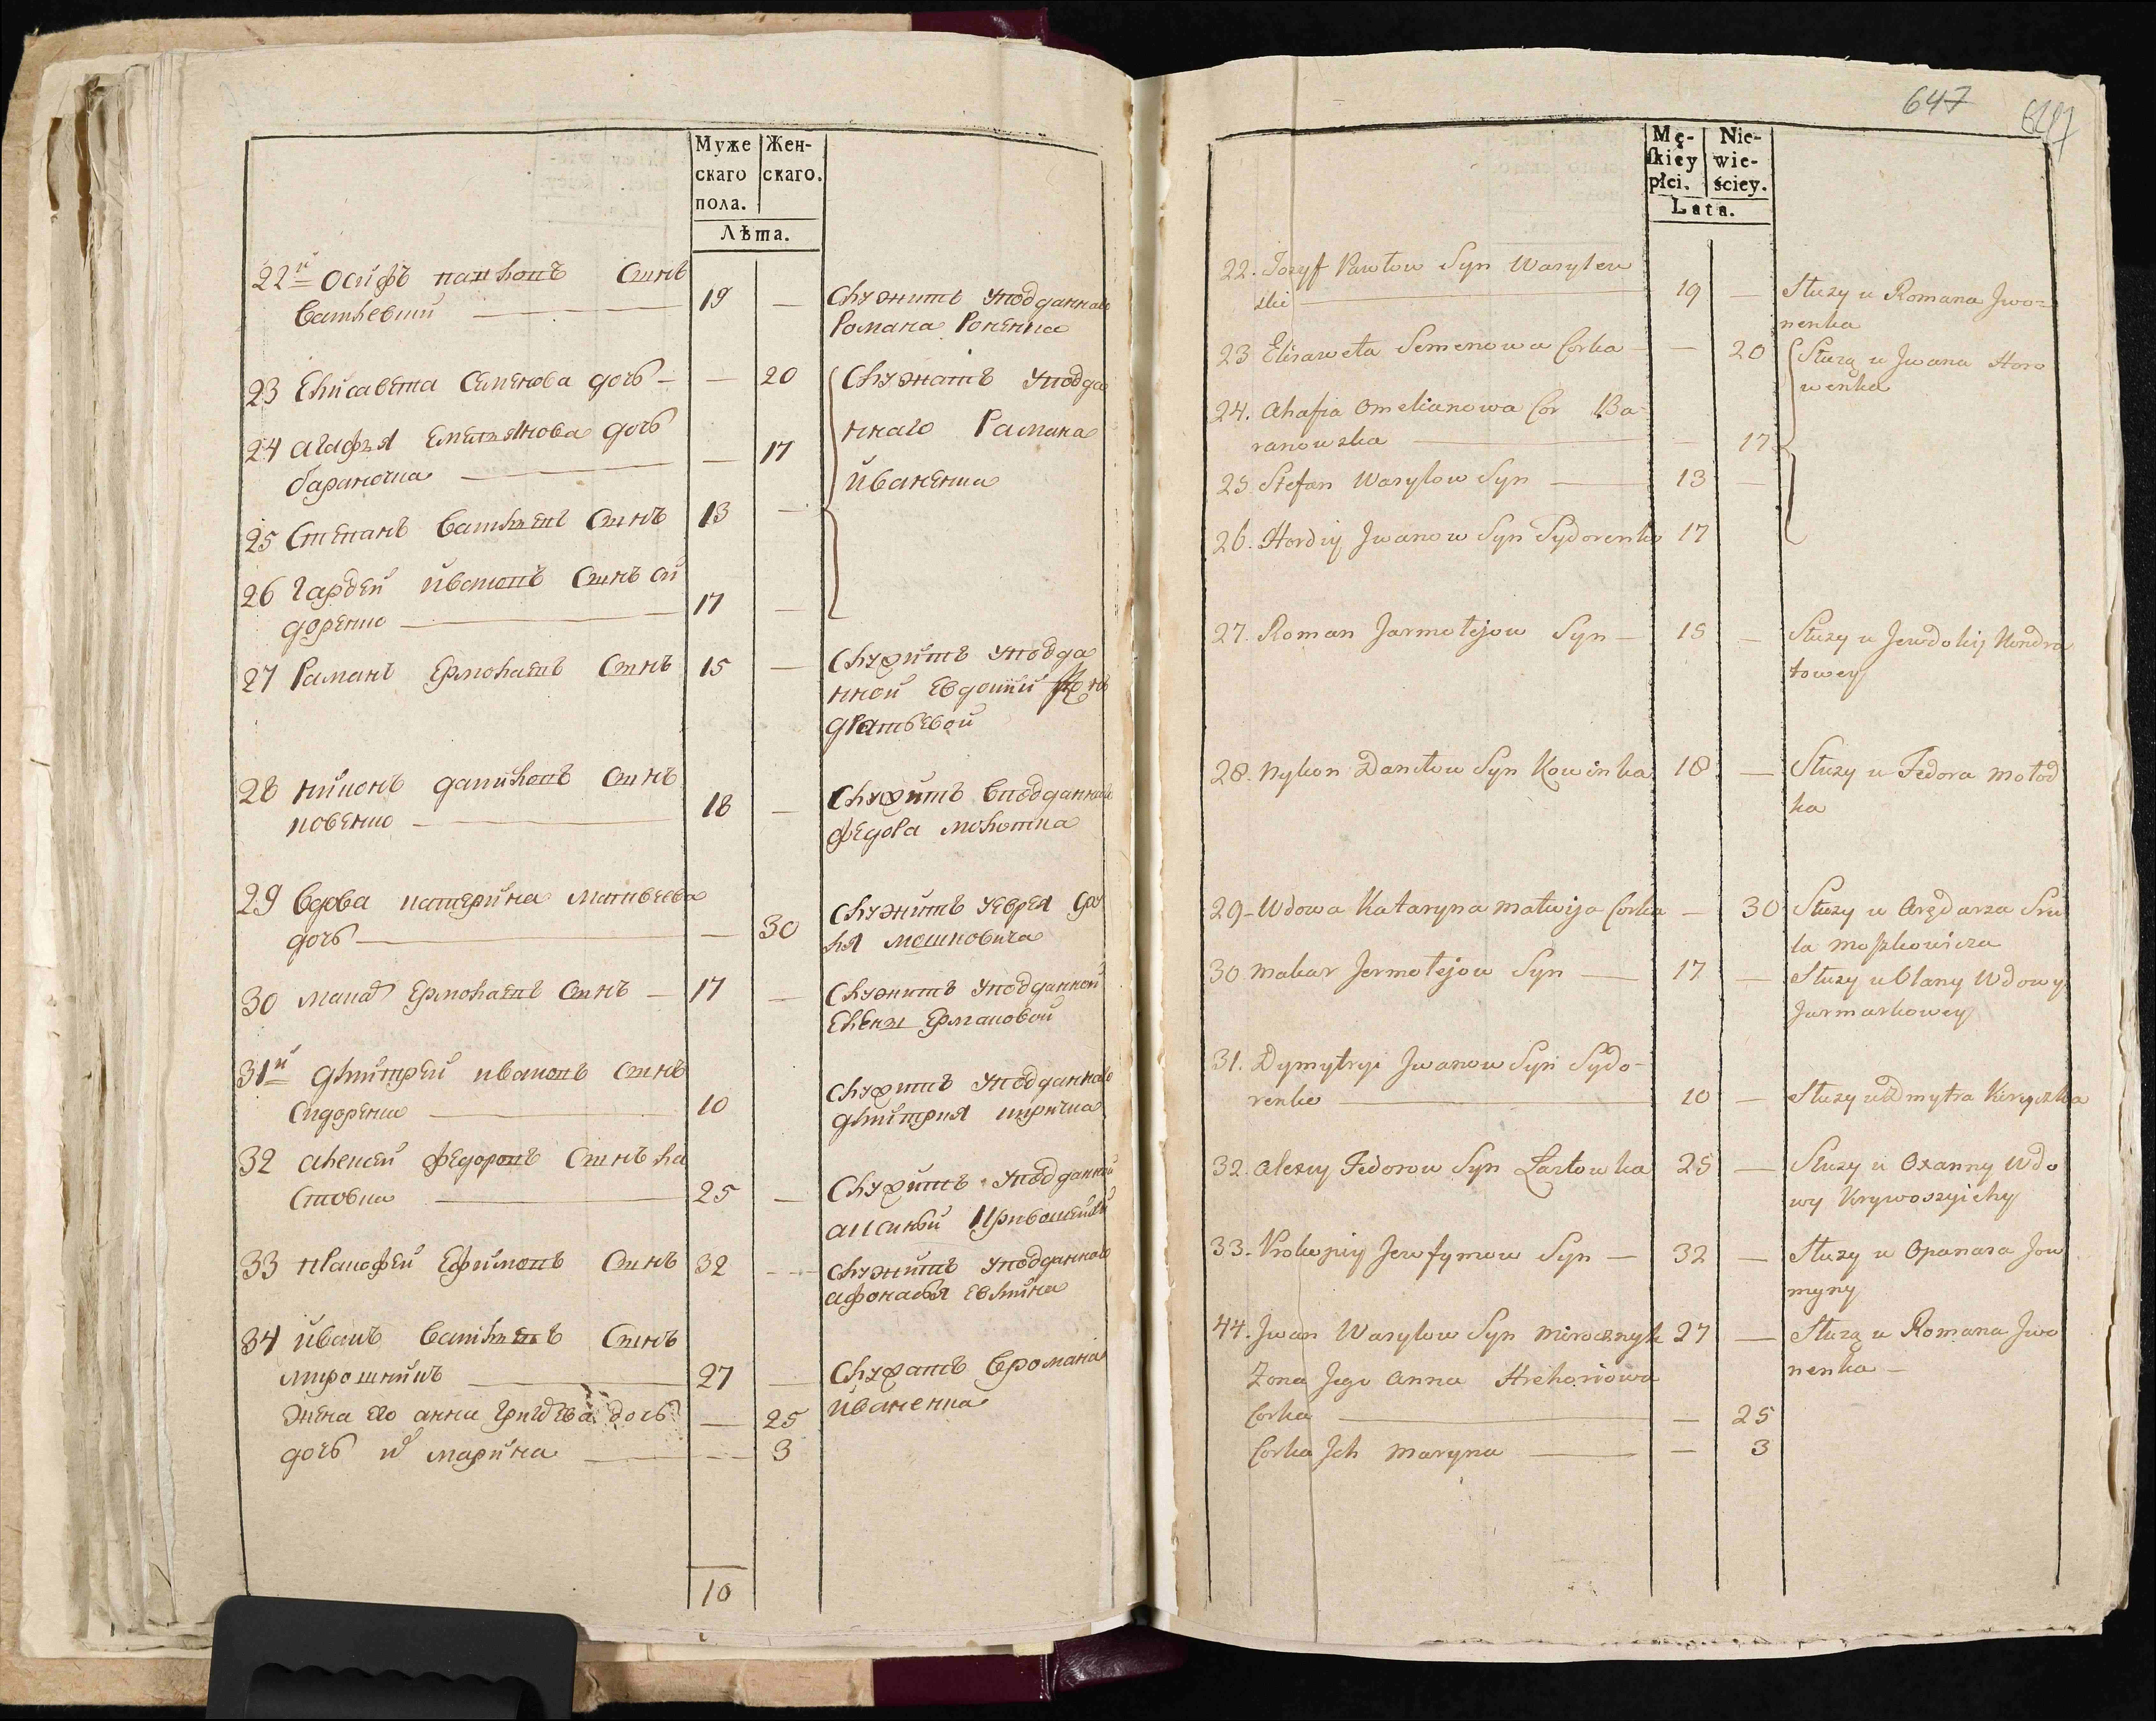 Муже
скаго
пола.
Жен-
скаго.
Лѣта.
22й Осифъ павловъ Сынъ
Василевский 19 —
Служитъ Уподданнаго
Романа
23 Елисавета Семенова дочь — — 20
Служатъ Уподда
24 агафья Емельянова дочь
барановка — 17
ннаго Рамана
иваненка
25 Степанъ Васильевъ Сынъ 13 —
26 Гардей ивановъ Сынъ си
доренко 17 —
27 Раманъ Ермолаевъ Сынъ 15 —
Служитъ Уподда
нной Евдокии Кон
дратьевой
28 никонъ даниловъ Сынъ
ковенко 18 —
Служитъ Вподданнаго
федора молотка
29 Вдова катерина Матвѣева
дочь — 30
Служитъ Уеврея
мошковича
30 Макаръ Ермолаевъ Сынъ — 17 —
Служитъ Уподданной
Елены Ермаковой
31й дмитрей ивановъ Сынъ
Сидоренко 10
Служитъ Уподданнаго
дмитрия киричка
32 алексей Федоровъ Сынъ ла
стовка 25 —
Служитъ Уподданной
аксиньи Кривошеихи
33 Ефимовъ Сынъ 32 —
Служитъ Уподданнаго
афонасья Евмина
34 иванъ Васильевъ Сынъ
мирошникъ 27 —
Служатъ Вромана
иваненка
жена его анна дочь — 25
дочь их марина — 3
10
647
647
Mę-
skiéy
płci.
Nie-
wie-
ściey.
Lata.
22. Jozyf Pawłow Syn Wasylew
ski 19 —
Służy u Romana Jwo-
nenka
23 Elisaweta Semenowa Corka — — 20
{Służą u Jwana Horo
wenka
24. Ahafia Omelianowa Cor Ba-
ranowska — 17
25 Stefan Wasylow Syn — 13 —
26. Hordiy Jwanow Syn Sydorenko 17
27. Roman Jarmołejow Syn — 15 —
Służy u Jewdokij Kondra
towey
28. Nykon Daniłow Syn Kowinka 18 —
Służy u Fedora Mołod
ka
29- Wdowa Kataryna Matwija Corka — 30
Służy u Arędarza Sru
la Moszkowicza
30. Makar Jermołejow Syn — 17 —
Służy u Olany Wdowy
Jurmarkowey
31. Dymytryi Jwanow Syn Sydo-
renko — 10 —
Służy u Dmytra Kiryczka
32. Alexiy Fedorow Syn Lastowka 25 —
Służy u Oxanny Wdo
wy Krywoszyichy
33. Prokopiy Jewfymow Syn — 32 —
Służy u Opanasa Jow
myny
44. Jwan Wasylow Syn Mirosznyk 27 —
Służą u Romana Jwo
nenka —
Zona Jego Anna Hrehoriowa
Corka — — 25
Corka Jch Maryna — — 3